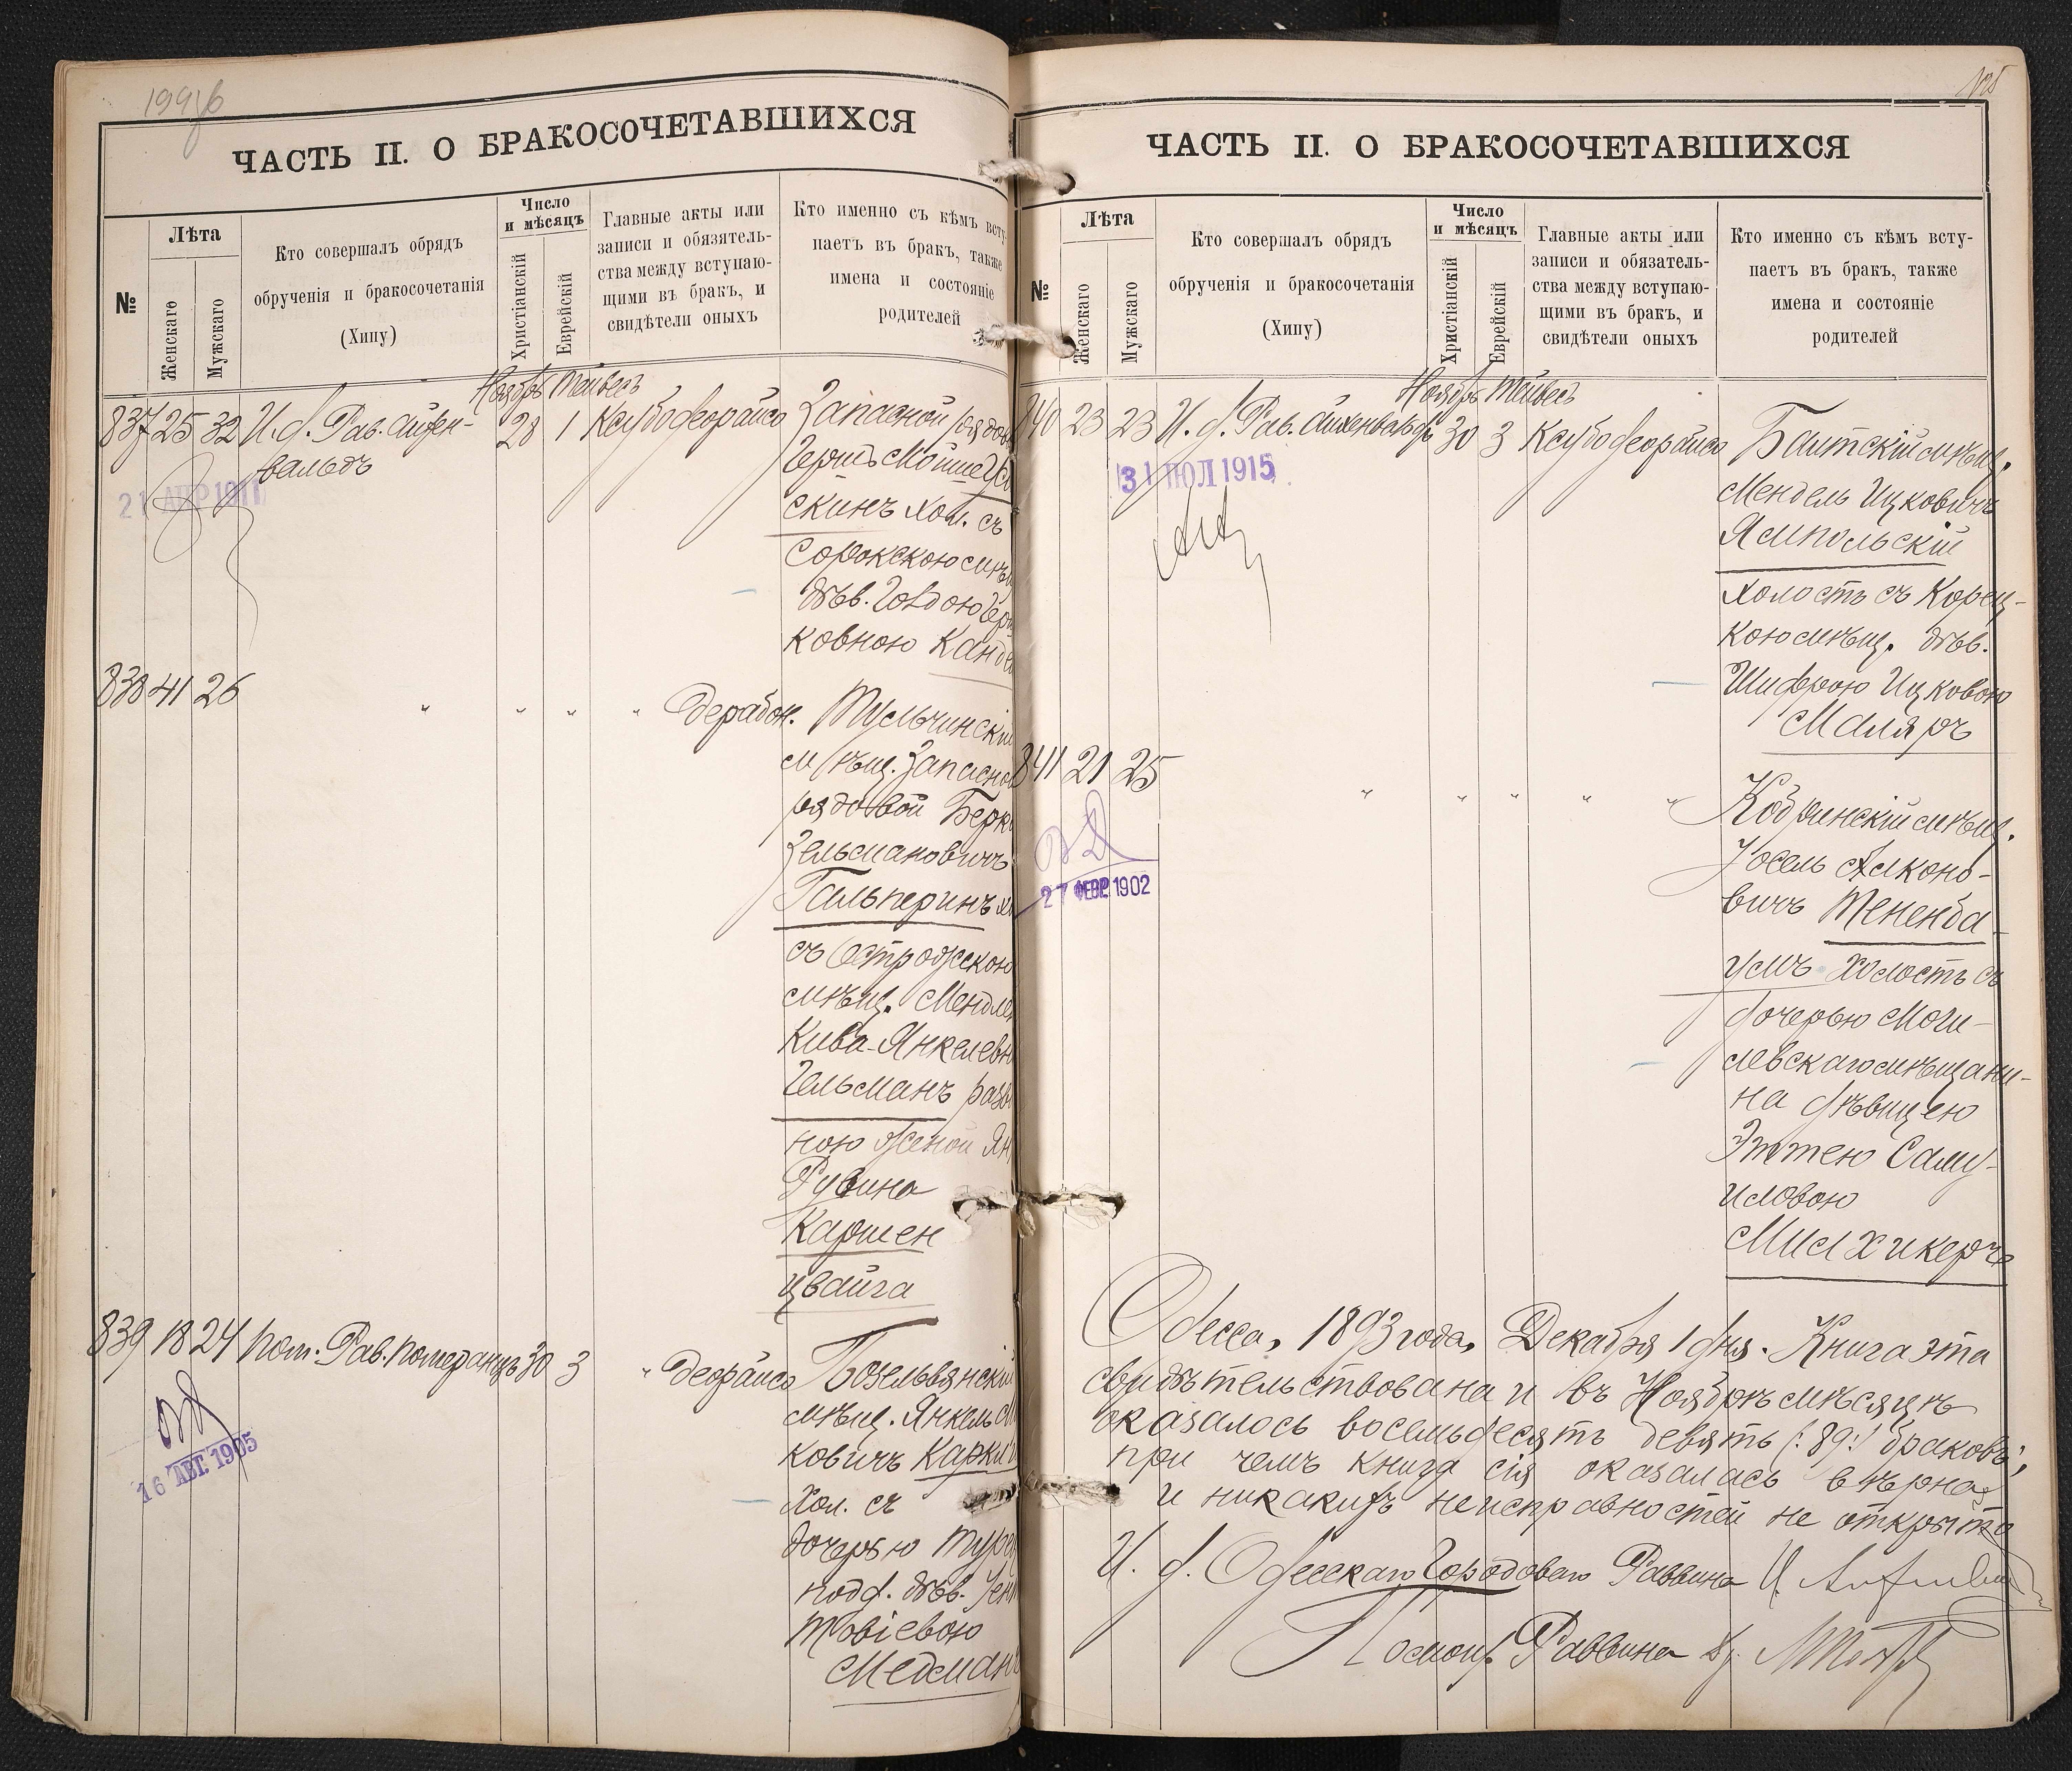 ЧАСТЬ II. О БРАКОСОЧЕТАВШИХСЯ
№
Лѣта
Женскаго
Мужскаго
Кто совершалъ обрядъ
обрученія и бракосочетанія
(Хипу)
Число
и мѣсяцъ
Христіанскій
Еврейскій
Главные акты или
записи и обязятель-
ства между вступаю-
щими въ бракъ, и
свидѣтели оныхъ
Кто именно съ кѣмъ всту-
паетъ въ бракъ, также
имена и состояніе
родителей
Ноябрь Тейвесъ
837 25 32 И. д. Рав. Айхен- 28 1 Ксубо деорайсо Запасной рядов
вальдъ
21 АПР 1911
Гершъ Мойше
скинъ хол. съ
Сорокскою мѣщ
дѣв. Говдою Гер
ковною Канде
838 41 26 " " " " дерабон. Тульчинскій
мѣщ. Запасной
рядовой Берко
Зельмановичъ
Гальперинъ хо
съ Острожскою
мѣщ. Мендле
Кива-Янкелевн
Гельманъ разв
ною женой Ян
Рувина
Кармен
цвайга
839 18 24 Пом. Рав. Померанцъ 30 3 " деорайсо
мѣщ. Янкель
ковичъ
Хол. съ
дочерью
подд. дѣв.
Товіевою
Медманъ
16 АВГ. 1905
ЧАСТЬ II. О БРАКОСОЧЕТАВШИХСЯ
№
Лѣта
Женскаго
Мужскаго
Кто совершалъ обрядъ
обрученія и бракосочетанія
(Хипу)
Число
и мѣсяцъ
Христіанскій
Еврейскій
Главные акты или
записи и обязатель-
ства между вступаю-
щими въ бракъ, и
свидѣтели оныхъ
Кто именно съ кѣмъ всту-
паетъ въ бракъ, также
имена и состояніе
родителей
Ноябрь Тейвесъ
840 23 23 И. д. Рав. Айхенвальдъ 30 3 Ксубо деорайсо Балтскій мѣщ.
31 ІЮЛ 1915
Мендель Ицковичъ
Ямпольскій
холостъ съ Корец-
кою мѣщ. дѣв.
Шифрою Ицковою
Маляръ
841 21 25 " " " " " Кобринскій мѣщ.
27 ФЕВР. 1902
Іосель Алконо-
вичъ Тененба-
умъ холостъ съ
дочерью Моги-
левскаго мѣщани-
на дѣвицею
Эттею Саму-
иловою
Милхикеръ
Одесса, 1893 года, Декабря 1 дня. Книга эта
свидѣтельствована и въ Ноябрѣ мѣсяцѣ
оказалось восемьдесятъ девять (:89:) браковъ;
при чемъ книга сія оказалась вѣрна
и никакихъ неисправностей не открыто
И. д. Одесскаго Городоваго Раввина
Помощ. Раввина